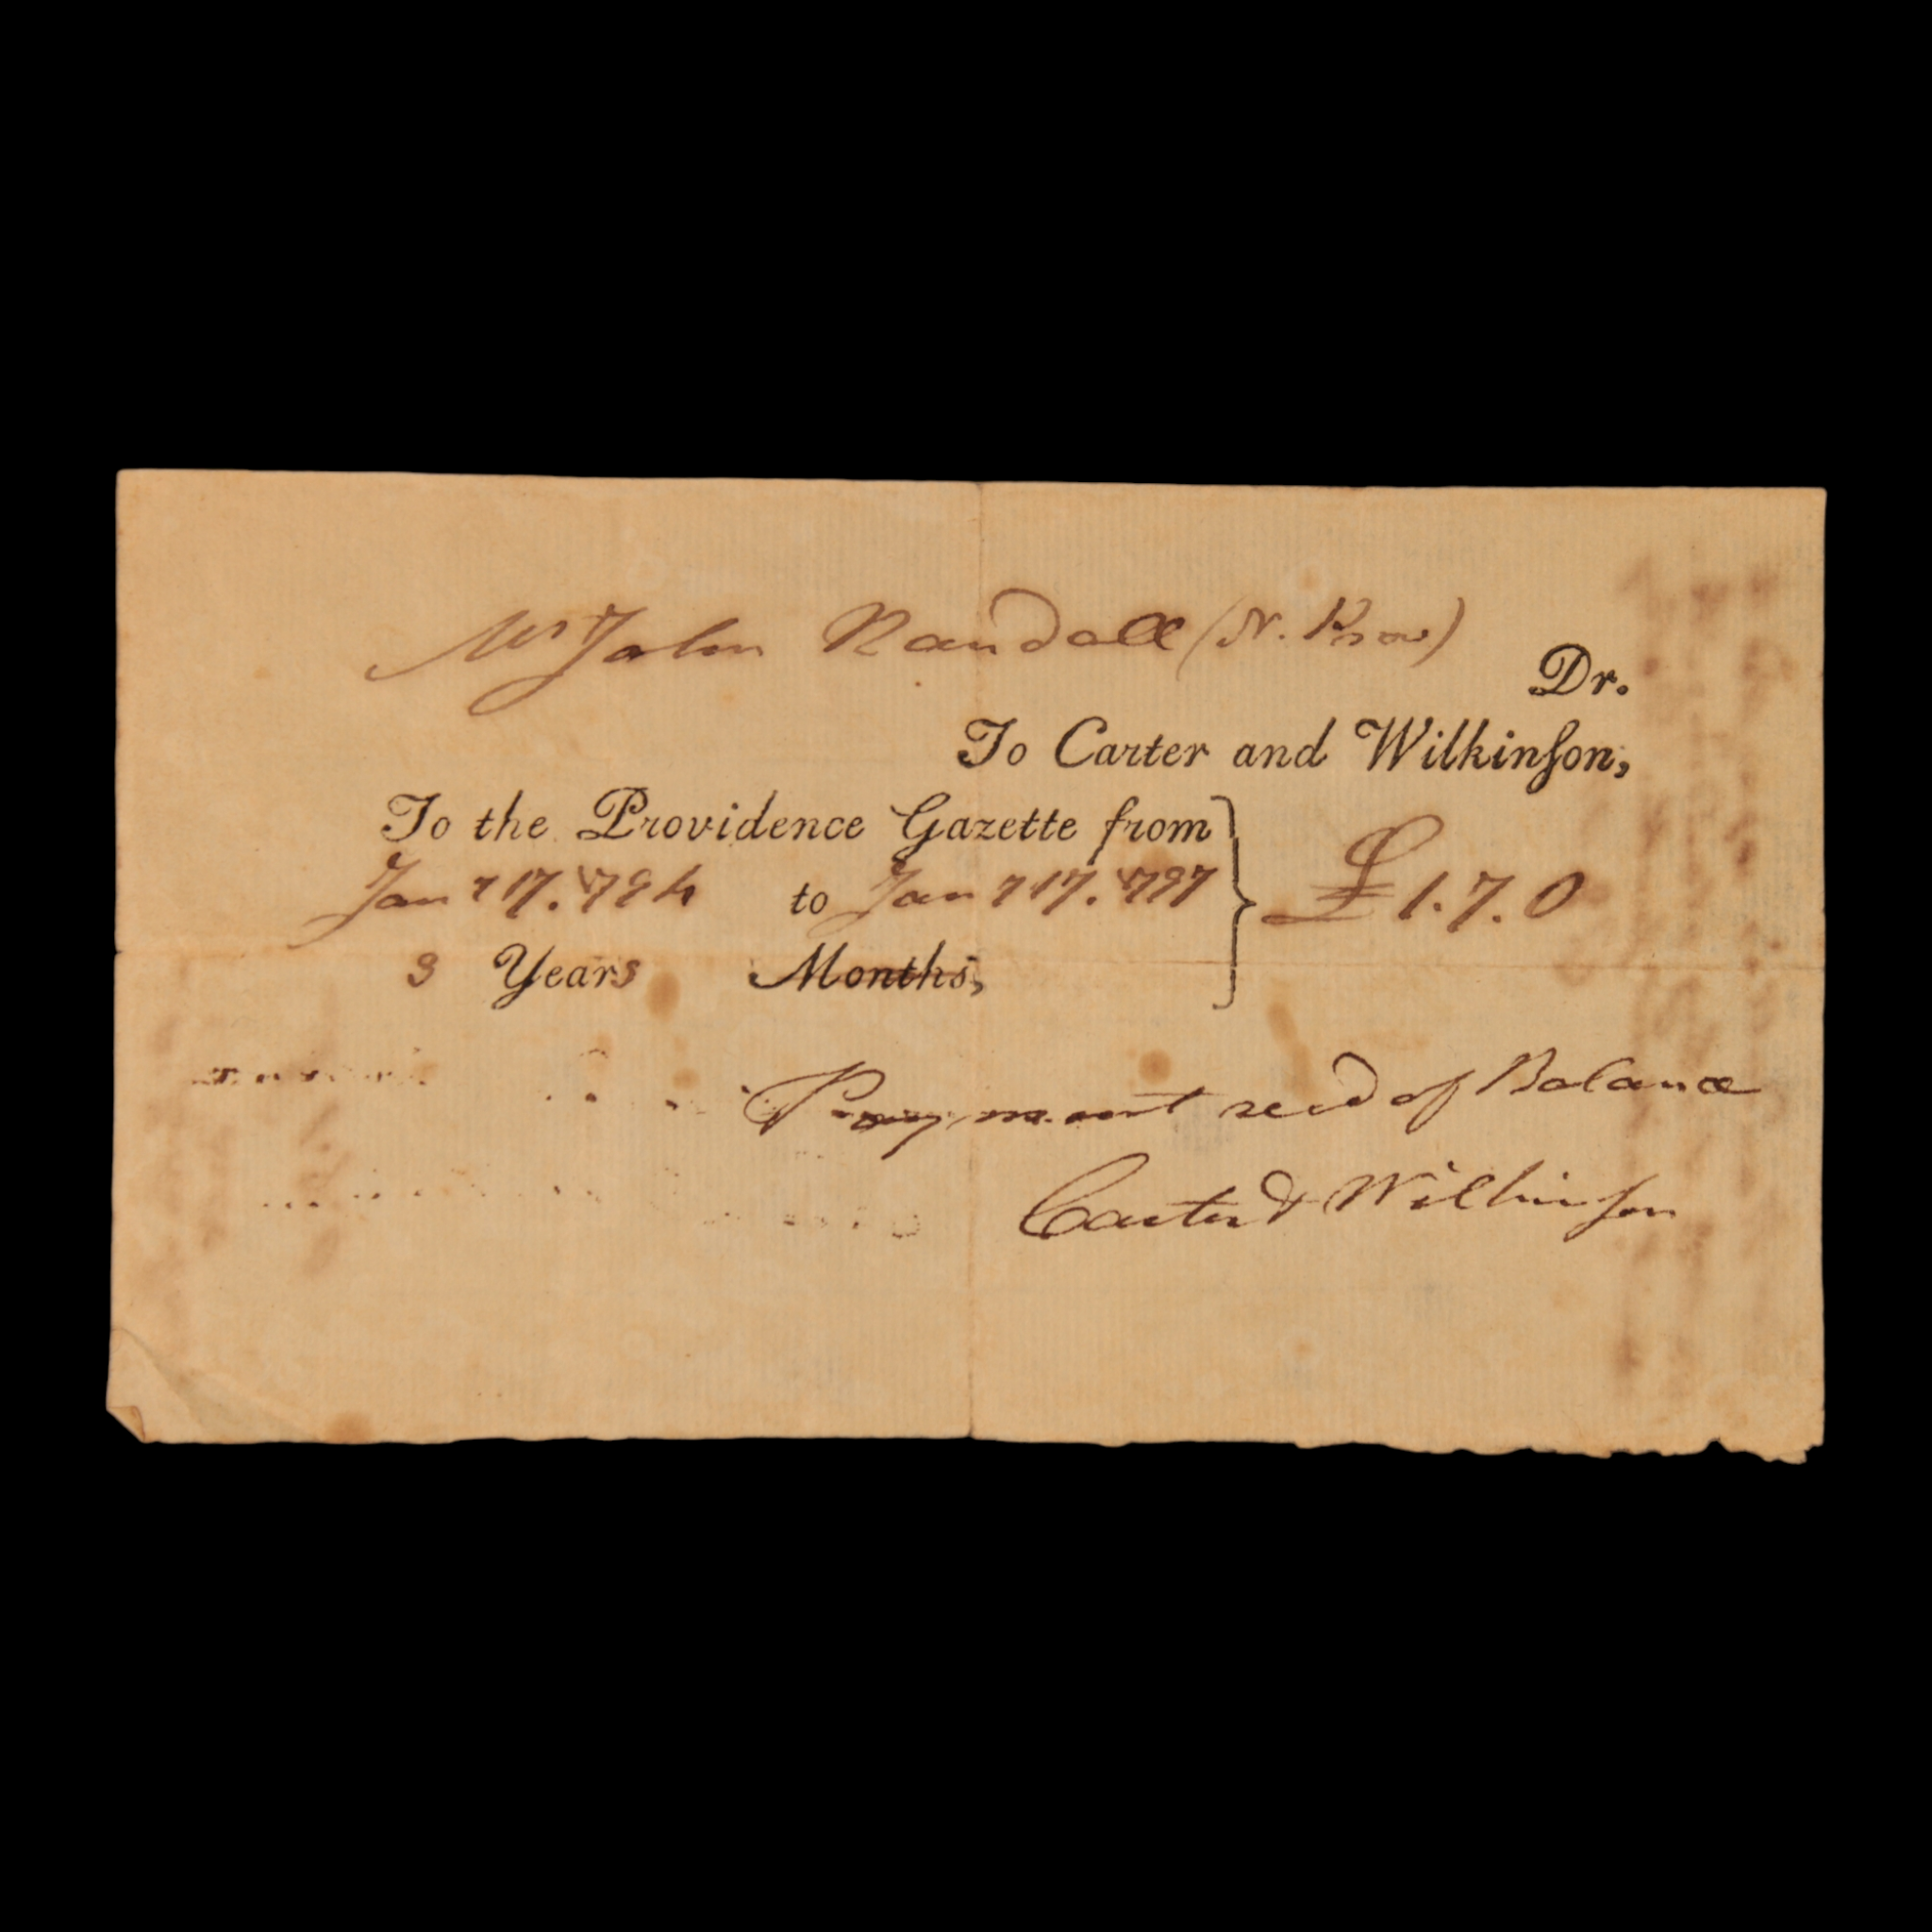 Mr John Randall (N. Prov)
Dr.
To Carter and Wilkinſon,
To the Providence Gazette from
Jany 17. 1794 to Jany 17. 1797
£1.7.0
3 Years Months,
Payment recd of Balance
Carter & Wilkinſon